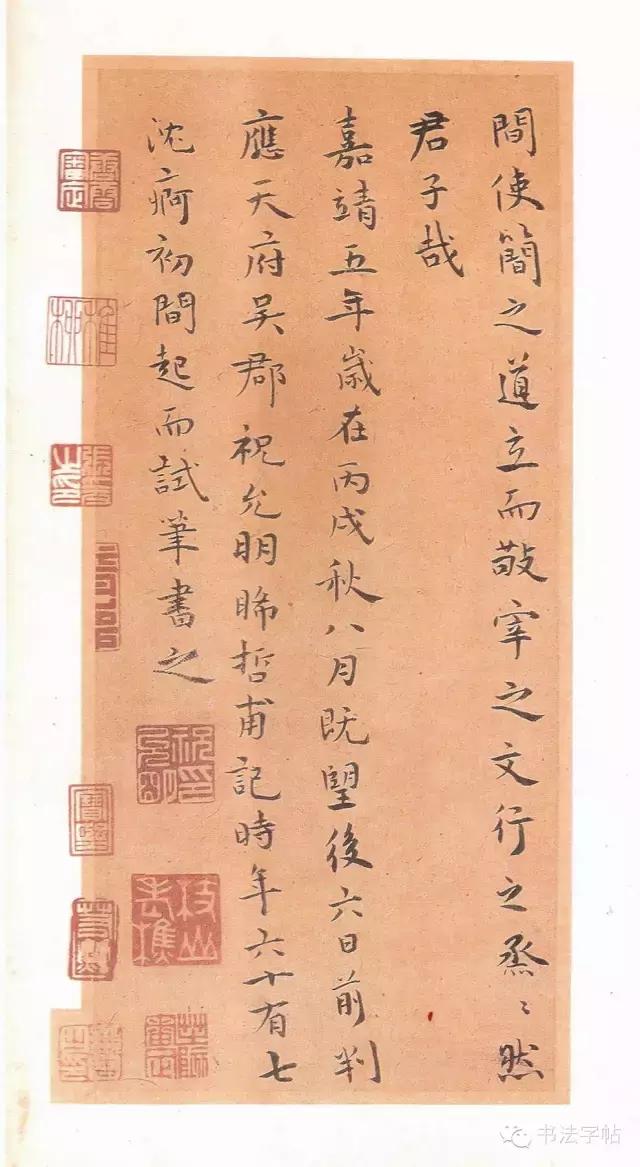 間使簡之道立而敬宰之文行之烝〻然
君子哉
嘉靖五年歲在丙戌秋八月既望後六日前判
應天府吳郡祝允明睎哲甫記時年六十有七
沈痾初間起而試筆書之
书法字帖